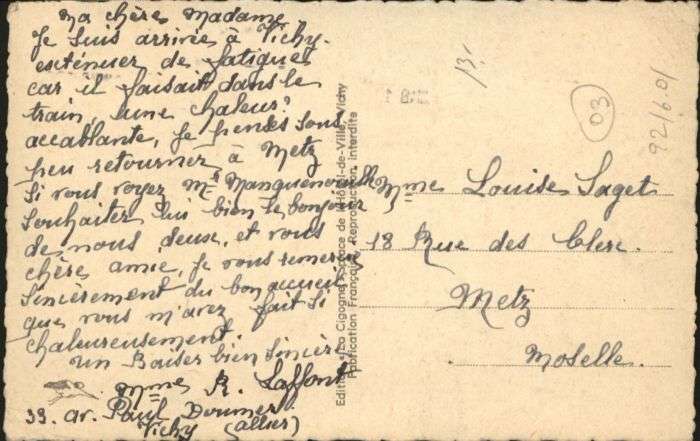 Ma chère Madame
Je suis arrivée à Vichy.
exténuer de fatigue
car il faisait dans le
train, une chaleur
accablante, Je pense sous
peu retourner à Metz
Si vous voyez Mr Manguenouille
souhaiter lui bien le bonjour
de nous deux, et vous
chère amie, Je vous remercie
Sincèrement du bon accueil
que vous m'avez fait si
chaleureusement.
un Baiser bien sincère
Mme R. Laffont
33. av. Paul Doumer
Vichy (Allier)
Editions La Cigogne, Place de l'Hôtel-de-Ville, Vichy
Fabrication Française, Reproduction interdite
13.
03
921601
Mme Louise Saget
18 Rue des Clerc.
Metz
Moselle.